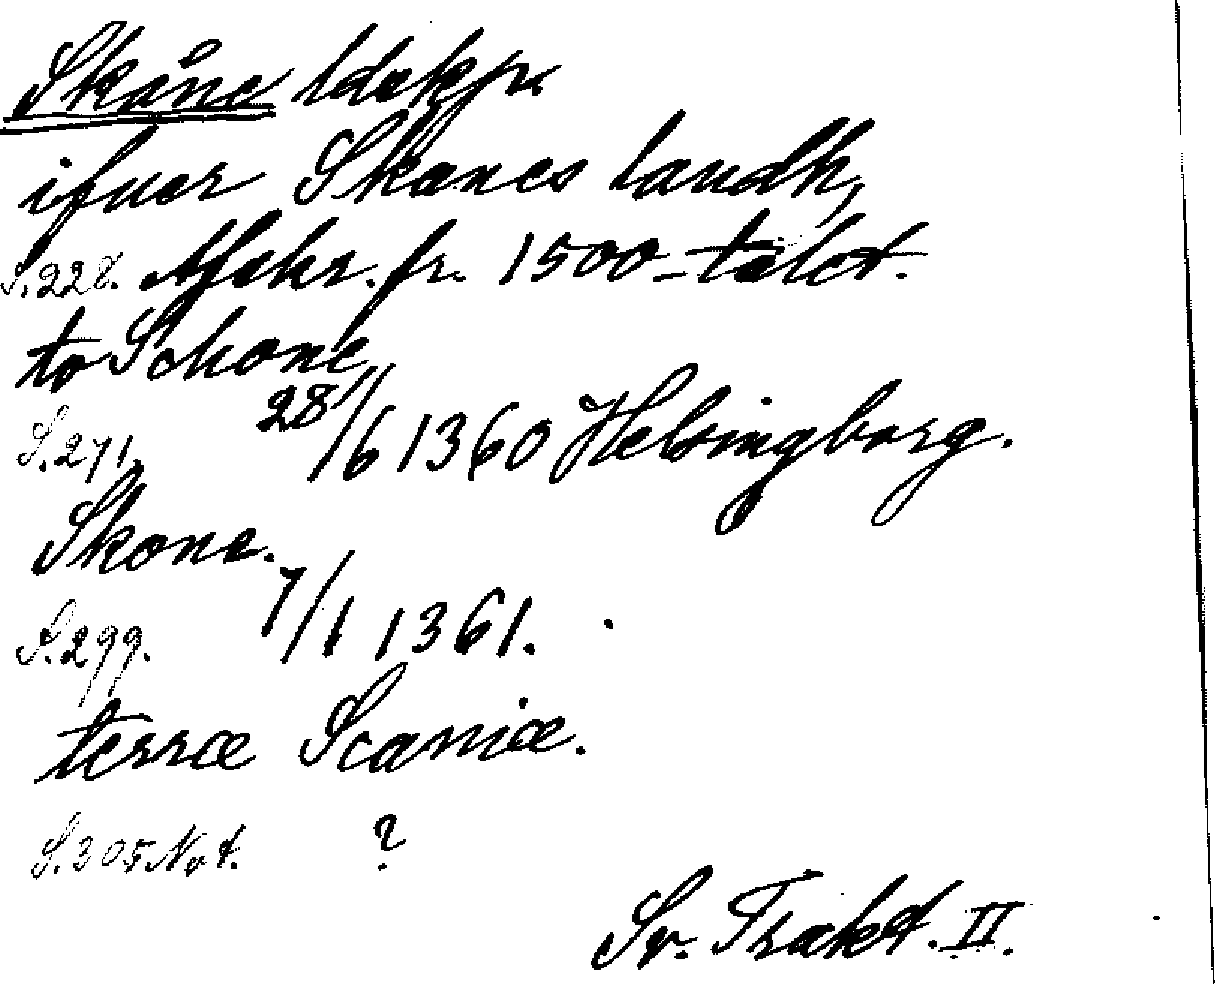 Skåne ldskp.
ifuer Skanes landh,
S.228. Afskr. fr. 1500-talet.
to Schone
S.271. 28/6 1360 Helsingborg.
Skone.
S.299. 7/1 1361.
terræ Scaniæ.
S.305 Not. ?
Sv. Trakt. II.